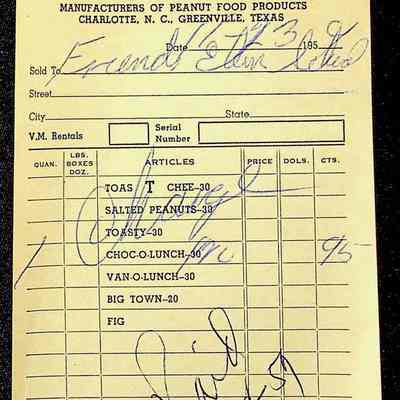 MANUFACTURERS OF PEANUT FOOD PRODUCTS
CHARLOTTE, N. C., GREENVILLE, TEXAS
Date 11/23 195
Sold To Friend
Street
City State
V.M. Rentals Serial Number
QUAN. LBS. BOXES DOZ. ARTICLES PRICE DOLS. CTS.
TOAS T CHEE-30
Charge
SALTED PEANUTS-30
TOASTY-30
1 CHOC-O-LUNCH-30 95
VAN-O-LUNCH-30
BIG TOWN-20
FIG
Paid